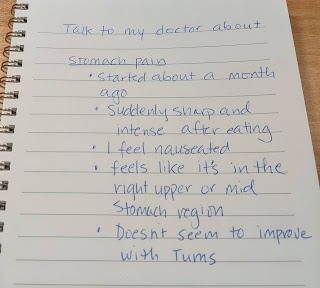 Talk to my doctor about
Stomach pain
• Started about a month
ago
• Suddenly sharp and
intense after eating
• I feel nauseated
• feels like it's in the
right upper or mid
stomach region
• Doesn't seem to improve
with Tums